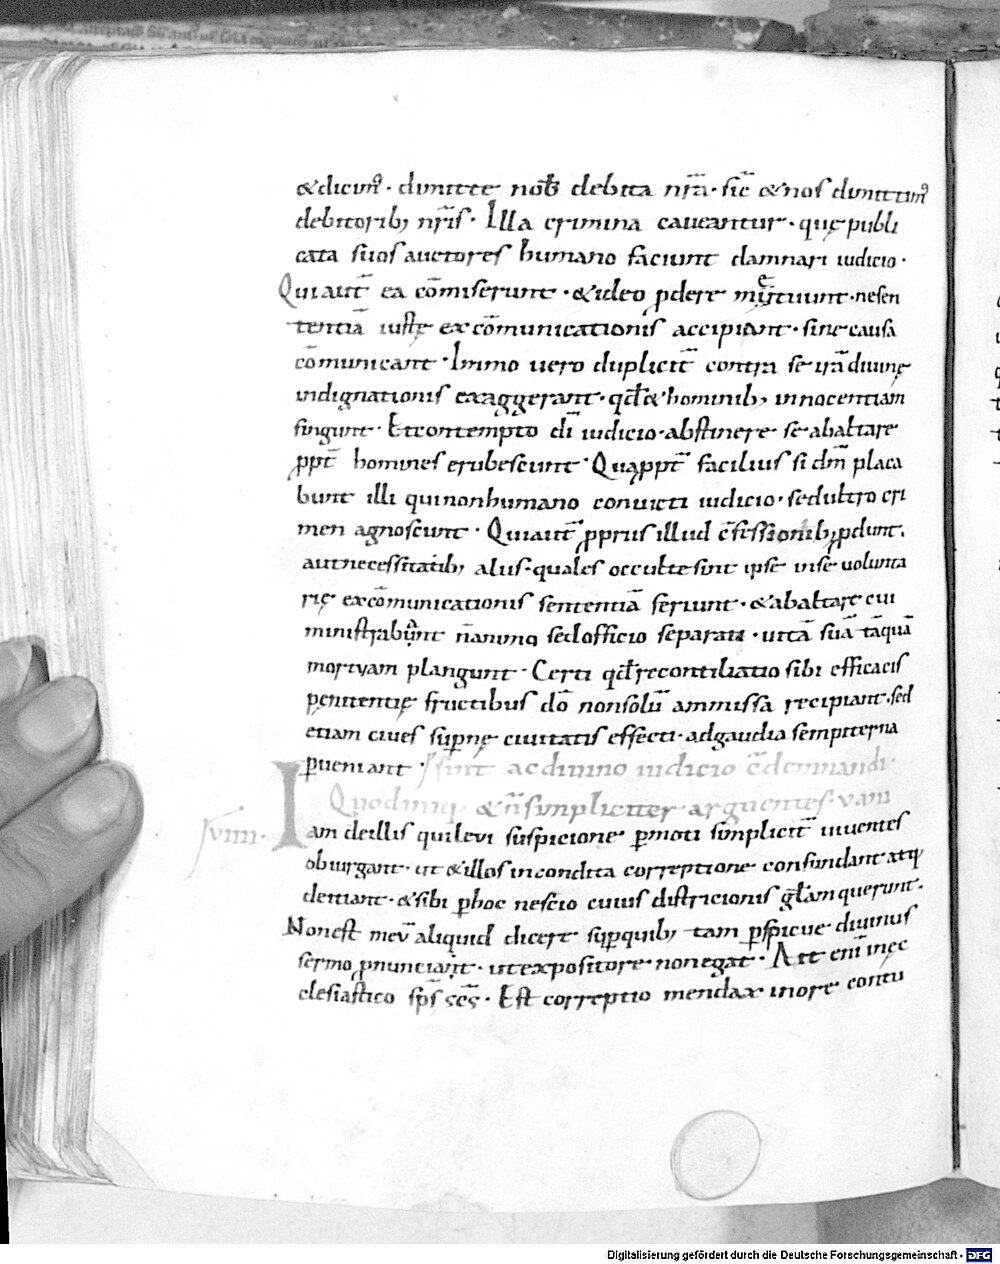 &dicim᷒ · dimitte nob̄ debita nr̄a · sic̄ & nos dimittim᷒
debitorib; nr̄is · Illa crimina caueantur · quę publi
cata suos auctores humano faciunt damnari iudicio ·
Qui aut̄ ea cōmiserunt · & ideo ꝓdere metuunt · ne sen
tentiā iustę excōmunicationis accipiant · sine causa
cōmunicant · Immo uero duplicit̄ contra se irā diuinę
indignationis exaggerant · qd̄ & hominib; innocentiam
fingunt · Et contempto dī iudicio · abstinere se ab altare
ꝓpt̄ homines erubescunt · Quapropt̄ facilius si dm̄ placa
bunt illi qui non humano conuicti iudicio · sed ultro cri
men agnoscunt · Qui aut̄ ꝓpriis illud c̄fessionib; ꝓdunt ·
aut necessitatib; aliis · quales occulte sint ipse in se uolunta
rię excōmunicationis sententiā ferunt · & ab altare cui
ministrabant n̄ animo sed officio separati · uitā suā tāquā
mortuam plangunt · Certi qd̄ reconciliatio sibi efficacis
penitentię fructibus dō non solū ammissa recipiant · sed
etiam ciues supernę ciuitatis effecti · ad gaudia sempiterna
perueniant · / sint ac diuino iudicio c̄demnandi ·
Quod iniq; & n̄ simpliciter arguentes · uani
VIIII · Iam de illis qui leui suspicione permoti simplicit̄ uiuentes
obiurgant · ut & illos incondita correptione confundant atq;
deiciant · & sibi per hoc nescio cuius districionis gl̄am querunt ·
Non est meū aliquid dicere sup quib; tam perspicue diuinus
sermo ꝓnunciat · ut expositore non egeat · Ait enī in ęc
clesiastico sps̄ sc̄s · Est correptio mendax in ore contu